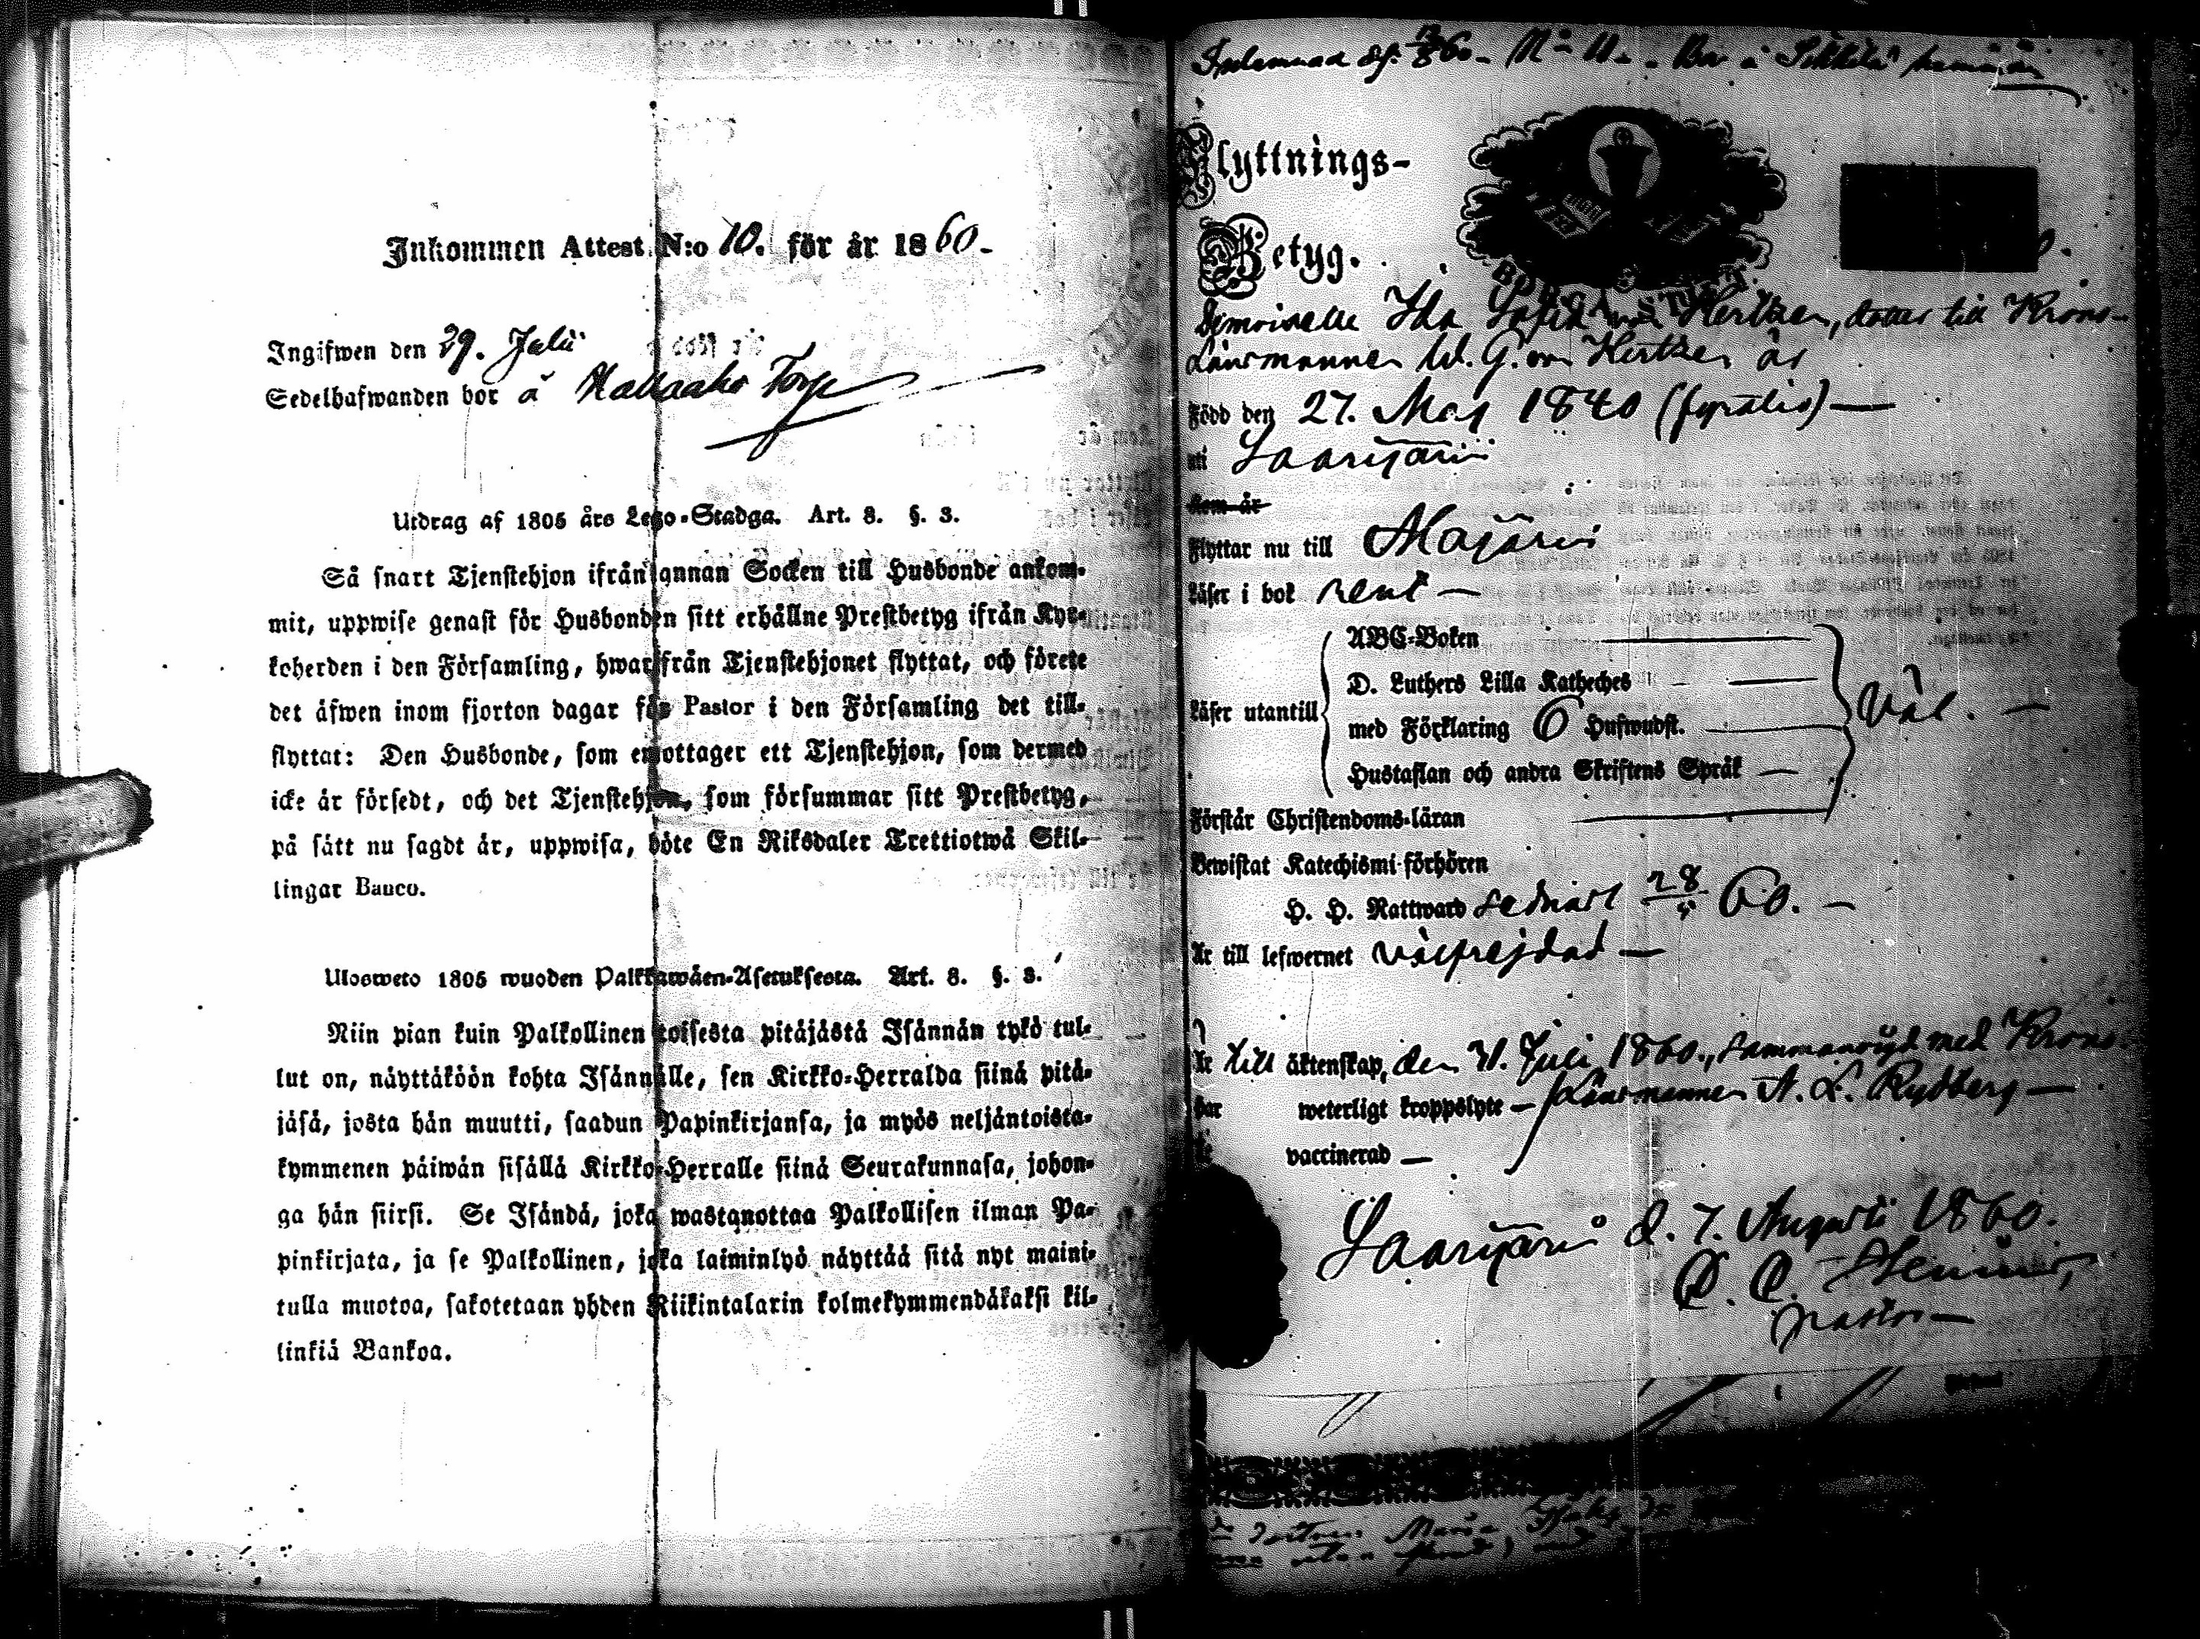 Inkommen Attest N:o 10. för år 1860.
Ingifwen den 29. Julii
Sedelhafwanden bor å Torp
Utdrag af 1805 års Lego-Stadga. Art. 8. §. 3.
Så snart Tjenstehjon ifrån annan Socken till Husbonde ankom-
mit, uppwise genast för Husbonden sitt erhållne Prestbetyg ifrån Kyr-
koherden i den Församling, hwarifrån Tjenstehjonet flyttat, och förete
det äfwen inom fjorton dagar för Pastor i den Församling det till-
flyttat: Den Husbonde, som emottager ett Tjenstehjon, som dermed
icke är försedt, och det Tjenstehjon, som försummar sitt Prestbetyg,
på sätt nu sagdt är, uppwisa, böte En Riksdaler Trettiotwå Skil-
lingar Banco.
Ulosweto 1805 wuoden Palkkawäen-Asetuksesta. Art. 8. §. 3.
Niin pian kuin Palkollinen toisesta pitäjästä Isännän tykö tul-
lut on, näyttäköön kohta Isännälle, sen Kirkko-Herralda siinä pitä-
jäsä, josta hän muutti, saadun Papinkirjansa, ja myös neljäntoista-
kymmenen päiwän sisällä Kirkko-Herralle siinä Seurakunnasa, johon-
ga hän siirsi. Se Isändä, joka wastanottaa Palkollisen ilman Pa-
pinkirjata, ja se Palkollinen, joka laiminlyö näyttää sitä nyt maini-
tulla muotoa, sakotetaan yhden Riikintalarin kolmekymmendäkaksi kil-
linkiä Bankoa.
Flyttnings-
Betyg.
Demoiselle Ida Sofia von Hertzen, dotter till Krono-
Länsmannen W. G. von Hertzen är
Född den 27. Maj 1840 (fyratio)
uti Saarijärvi
som är
Flyttar nu till
Läser i bok rent
Läser utantill
ABC-Boken
D. Luthers Lilla Katheches
med Förklaring 6 Hufwudst.
Hustaflan och andra Skriftens Språk
Väl.
Förstår Christendoms-läran
Bewistat Katechismi-förhören
H. H. Nattward sednast 60.
Är till lefwernet välfrejdad
Är till äktenskap, den 31. Juli 1860, sammanvigd med Krono-
Länsmannen A. L. Rydberg
har weterligt kroppslyte
vaccinerad
Saarijärvi d. 7. Augusti 1860.
pastor